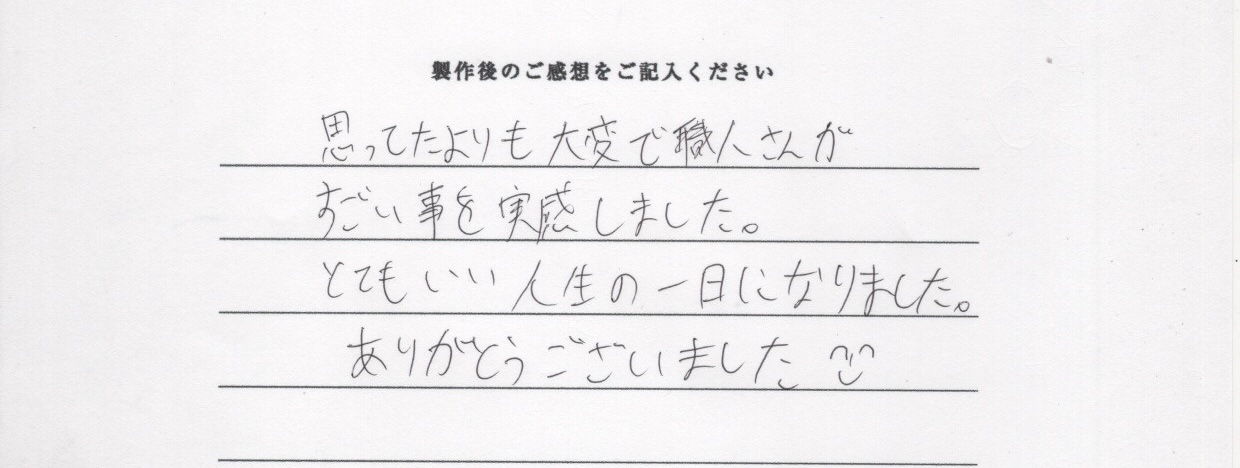 製作後のご感想をご記入ください
思ってたよりも大変で職人さんが
すごい事を実感しました。
とてもいい人生の一日になりました。
ありがとうございました